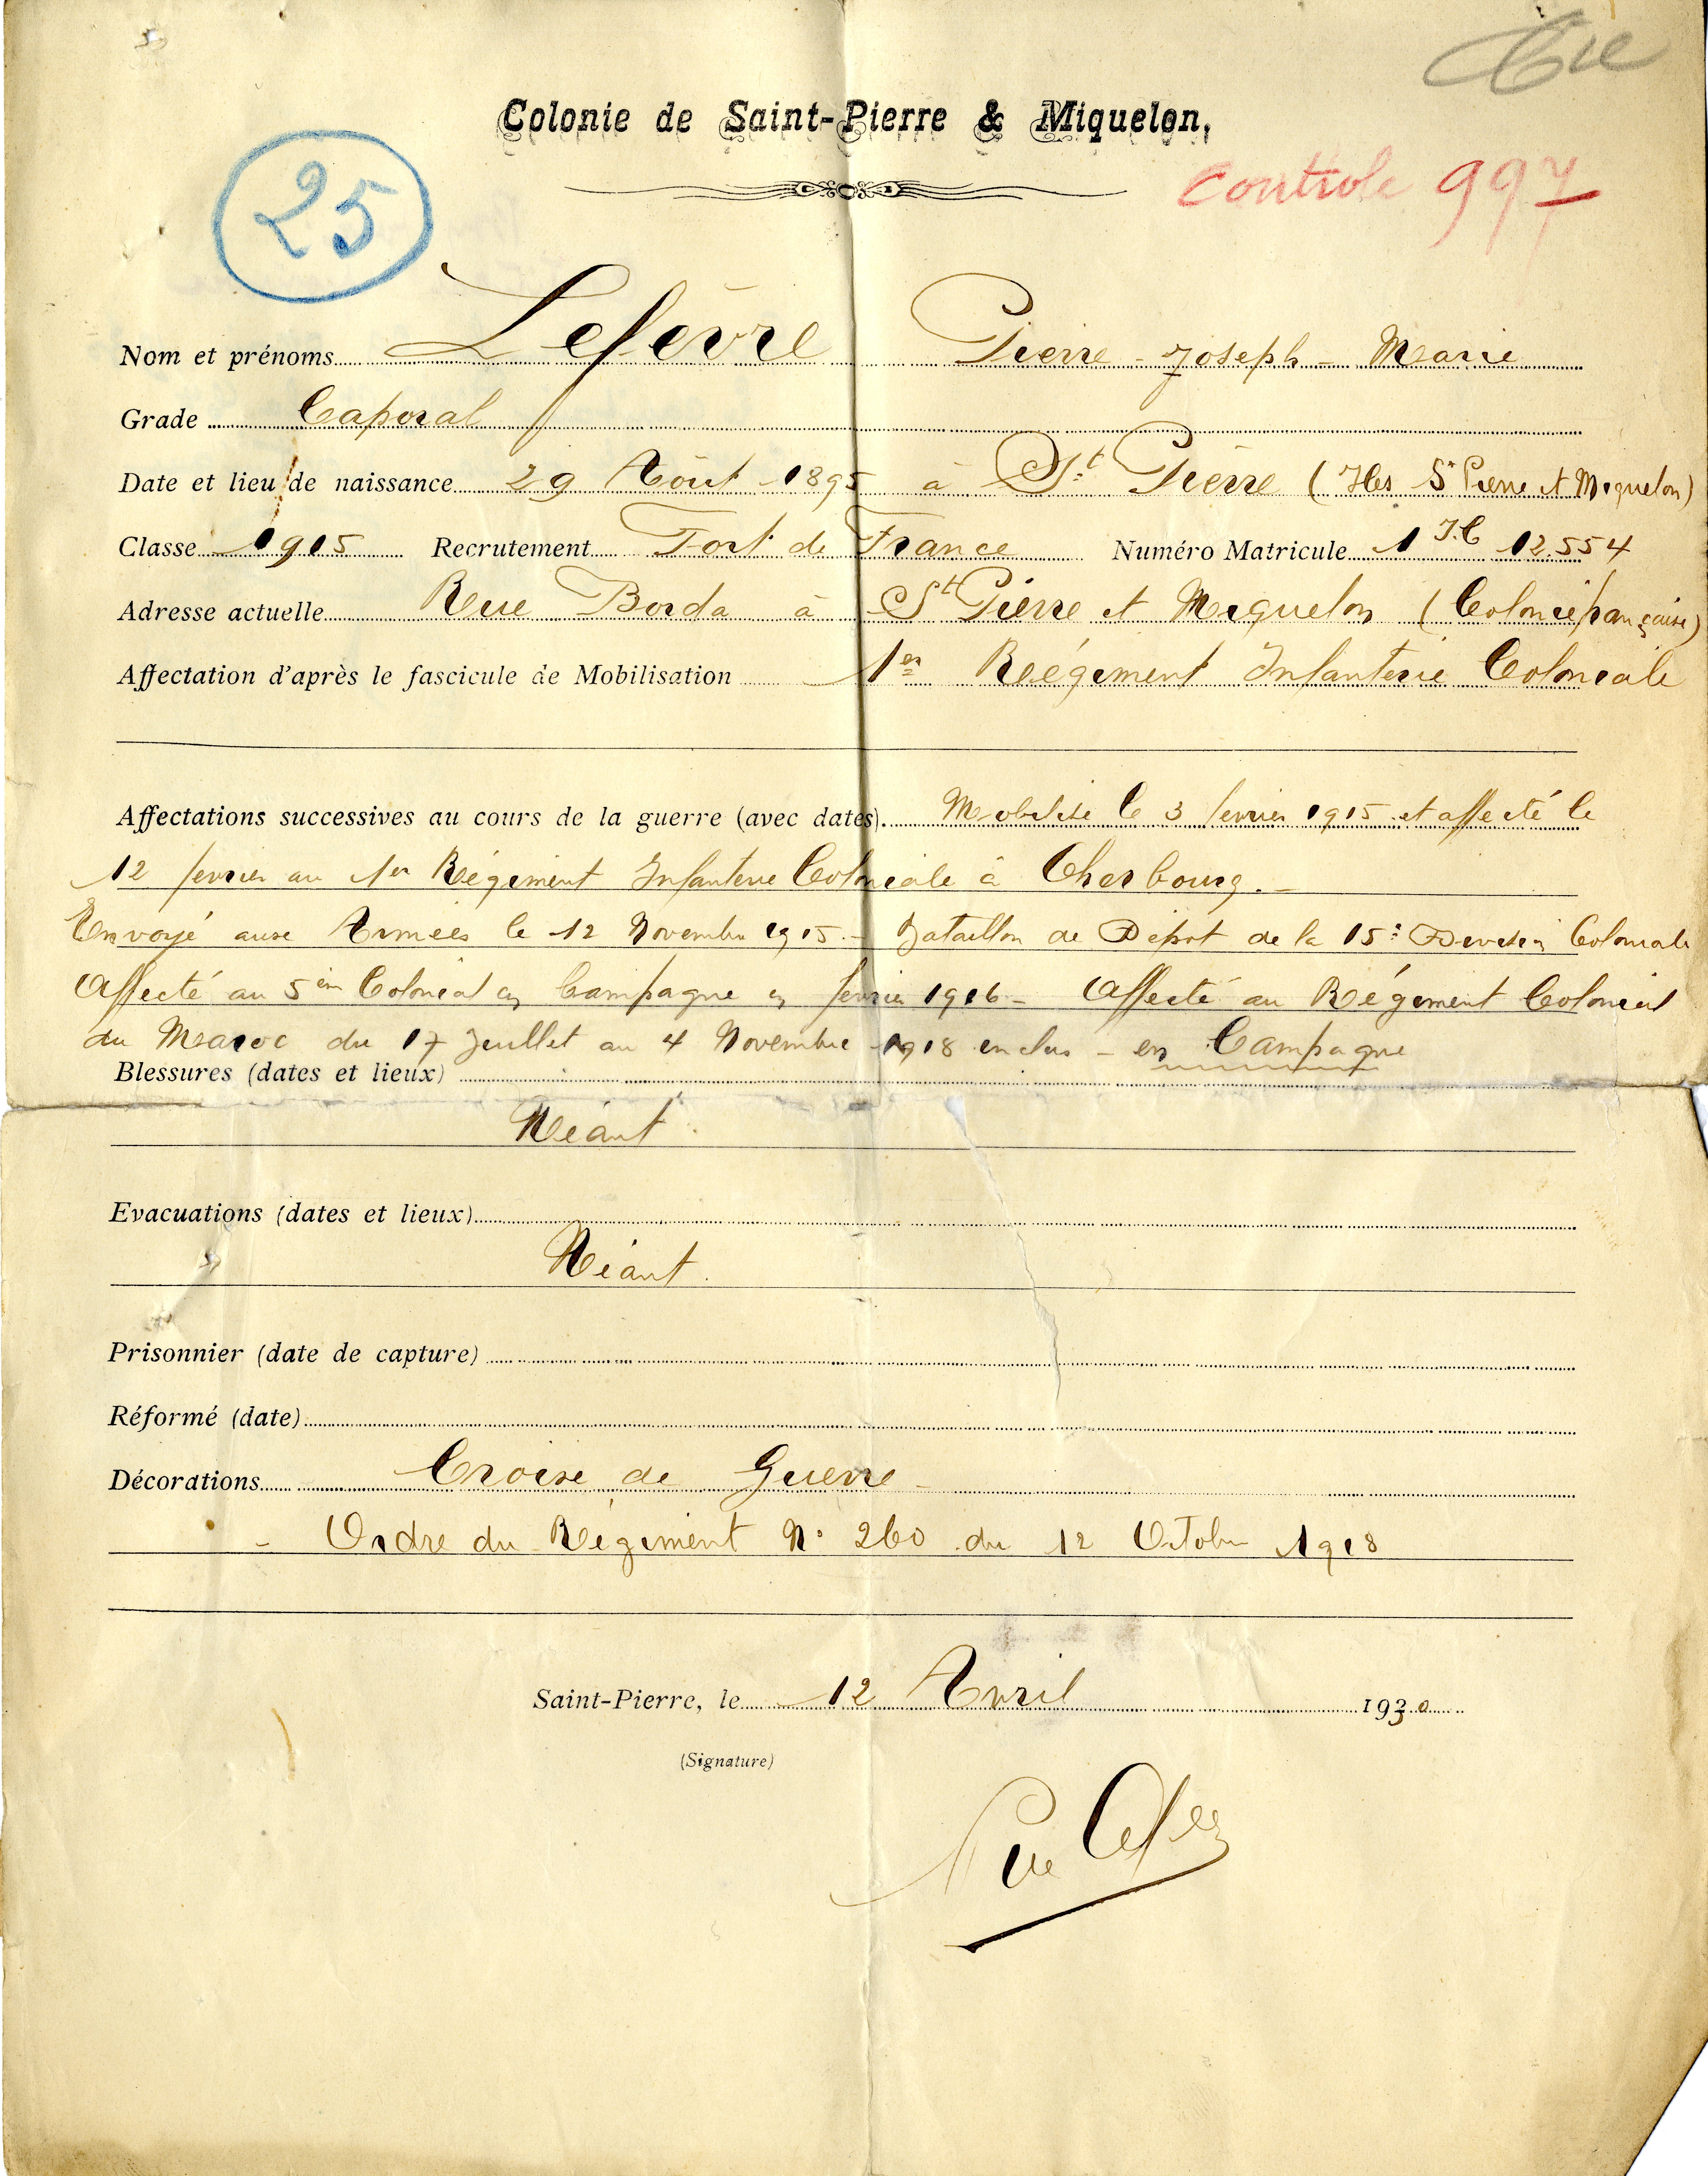 Colonie de Saint-Pierre & Miquelon,
25
Controle 997
Nom et prénoms Lefèvre Pierre - Joseph - Marie
Grade Caporal
Date et lieu de naissance 29 Août 1895 à St Pierre (Iles St Pierre et Miquelon)
Classe 1915 Recrutement Fort de France Numéro Matricule 1 I.C 12.554
Adresse actuelle Rue Borda à St Pierre et Miquelon (Colonie française)
Affectation d'après le fascicule de Mobilisation 1er Régiment Infanterie Coloniale
Affectations successives au cours de la guerre (avec dates). Mobilisé le 3 fevrier 1915 et affecté le
12 fevrier au 1er Régiment Infanterie Coloniale à Cherbourg. -
Envoyé aux Armées le 12 Novembre 1915. - Bataillon de Dépot de la 15e Division Coloniale
Affecté au 5em Colonial en Campagne en fevrier 1916 - Affecté au Régiment Colonial
du Maroc du 17 Juillet au 4 Novembre 1918 inclus - en Campagne
Blessures (dates et lieux)
Néant
Evacuations (dates et lieux)
Néant.
Prisonnier (date de capture)
Réformé (date)
Décorations Croix de Guerre -
- Ordre du Régiment N° 260 du 12 Octobre 1918
Saint-Pierre, le 12 Avril 1930
(Signature)